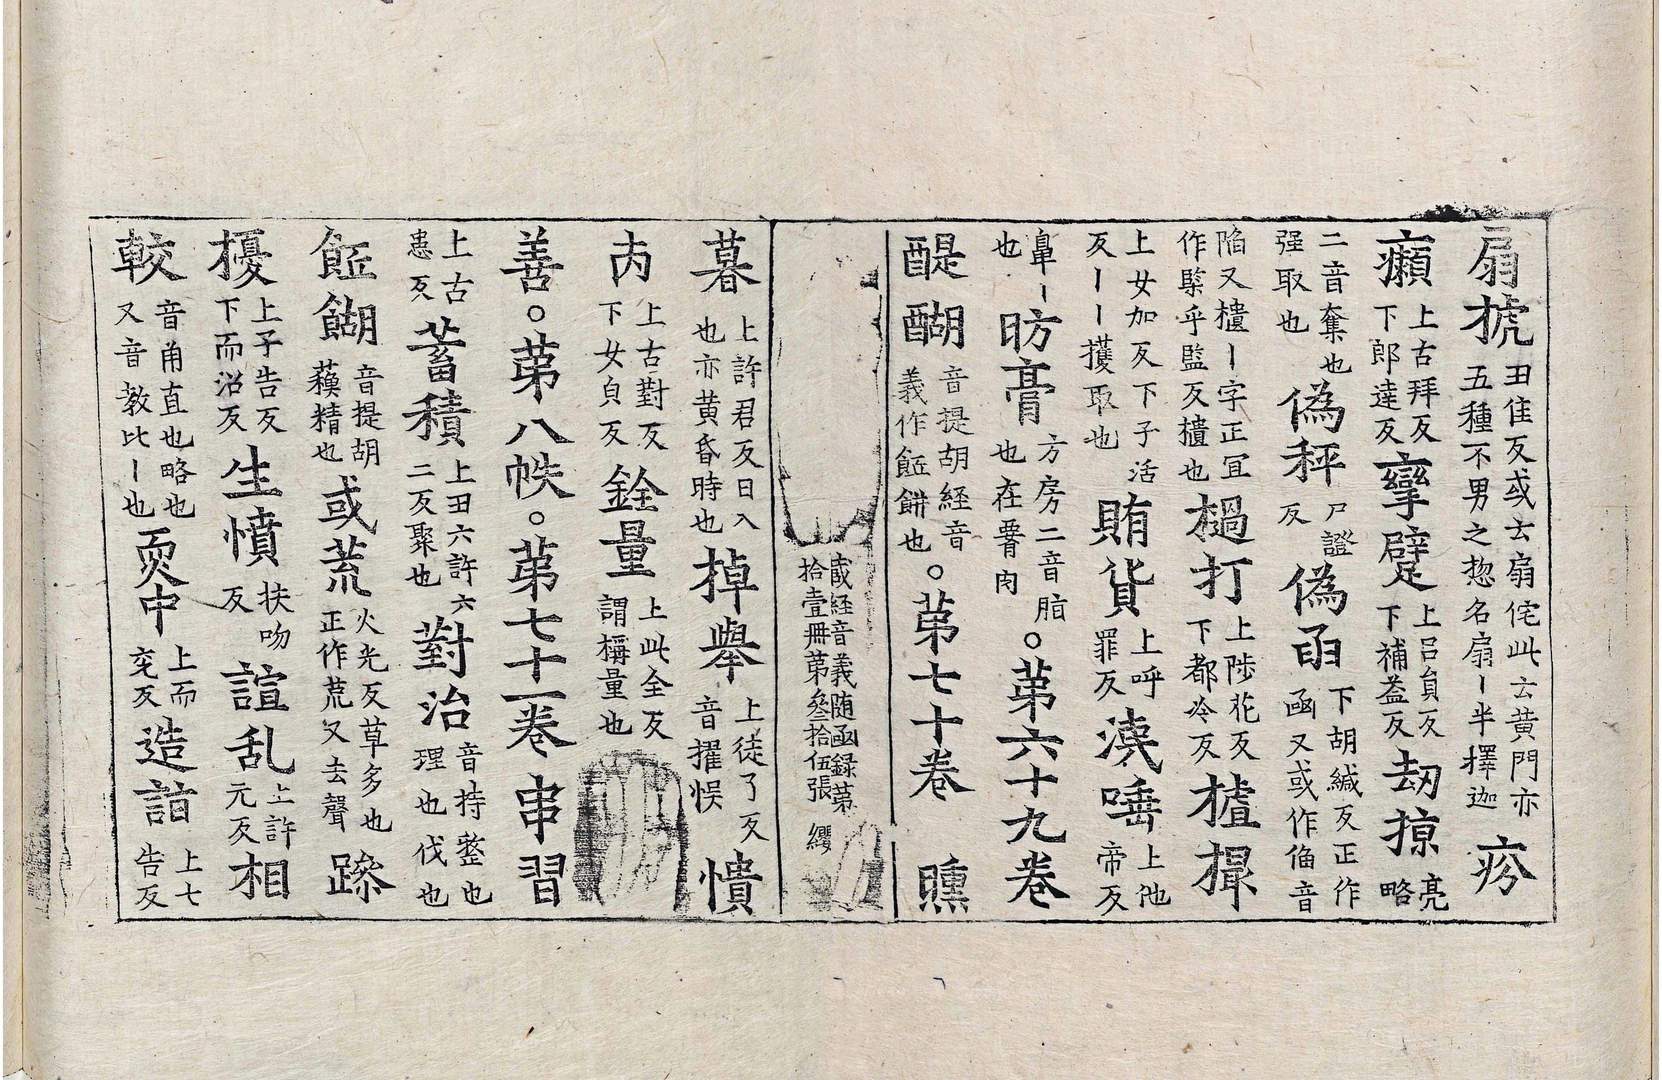 扇搋丑佳反或云扇侘此云黄門亦五種不男之惣名扇丨半擇迦疥
癩上古拜反下郎達反攣躄上呂貟反下補益反刼掠亮略
二音奪也强取也偽秤尸證反偽函下胡緘反正作函又或作偹音
陷又樻丨字正冝作檕乎監反樻也檛打上陟花反下都冷反摣撮
上女加反下子活反丨丨擭取也賄貨上呼罪反洟唾上他帝反
鼻丨也肪膏方房二音脂也在𦝫肉。苐六十九卷
醍醐音提胡経音義作𩚳餬也。苐七十卷曛
蔵経音義随函録第拾壹冊第叄拾伍張
暮上許君反日入也亦黄昏時也掉舉上徒了反音擢悮憒
丙上古對反下女貟反銓量上此全反謂稱量也
善。苐八帙。苐七十一卷串習
上古患反蓄積上丑六許六二反聚也對治音持整也理也伐也
䬫餬音提胡蘓精也或荒火光反草多也正作荒又去聲蹨
擾上子告反下而沼反生憤扶吻反諠乱上許元反相
較音甬直也略也又音教比丨也耎中上而兖反造詣上七告反